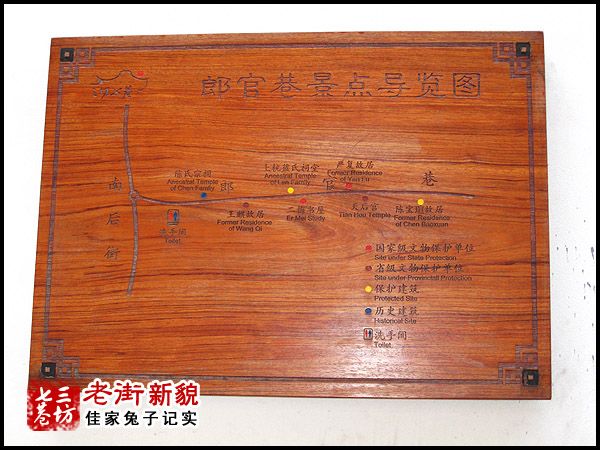 郎官巷景点导览图
严复故居
Former Residence
of Yan Fu
上杭蓝氏祠堂
Ancestral Temple
of Lan Family
陈氏宗祠
Ancestral Temple
of Chen Family
郎
官
巷
南后街
洗手间
Toilet
王麒故居
Former Residence
of Wang Qi
二梅书屋
Er Mei Study
天后宫
Tian Hou Temple
陈宝瑄故居
Former Residence
of Chen Baoxuan
国家级文物保护单位
Site under State Protection
省级文物保护单位
Site under Provincial Protection
保护建筑
Protected Site
历史建筑
Historical Site
洗手间
Toilet
三坊七巷
老街新貌
佳家兔子记实